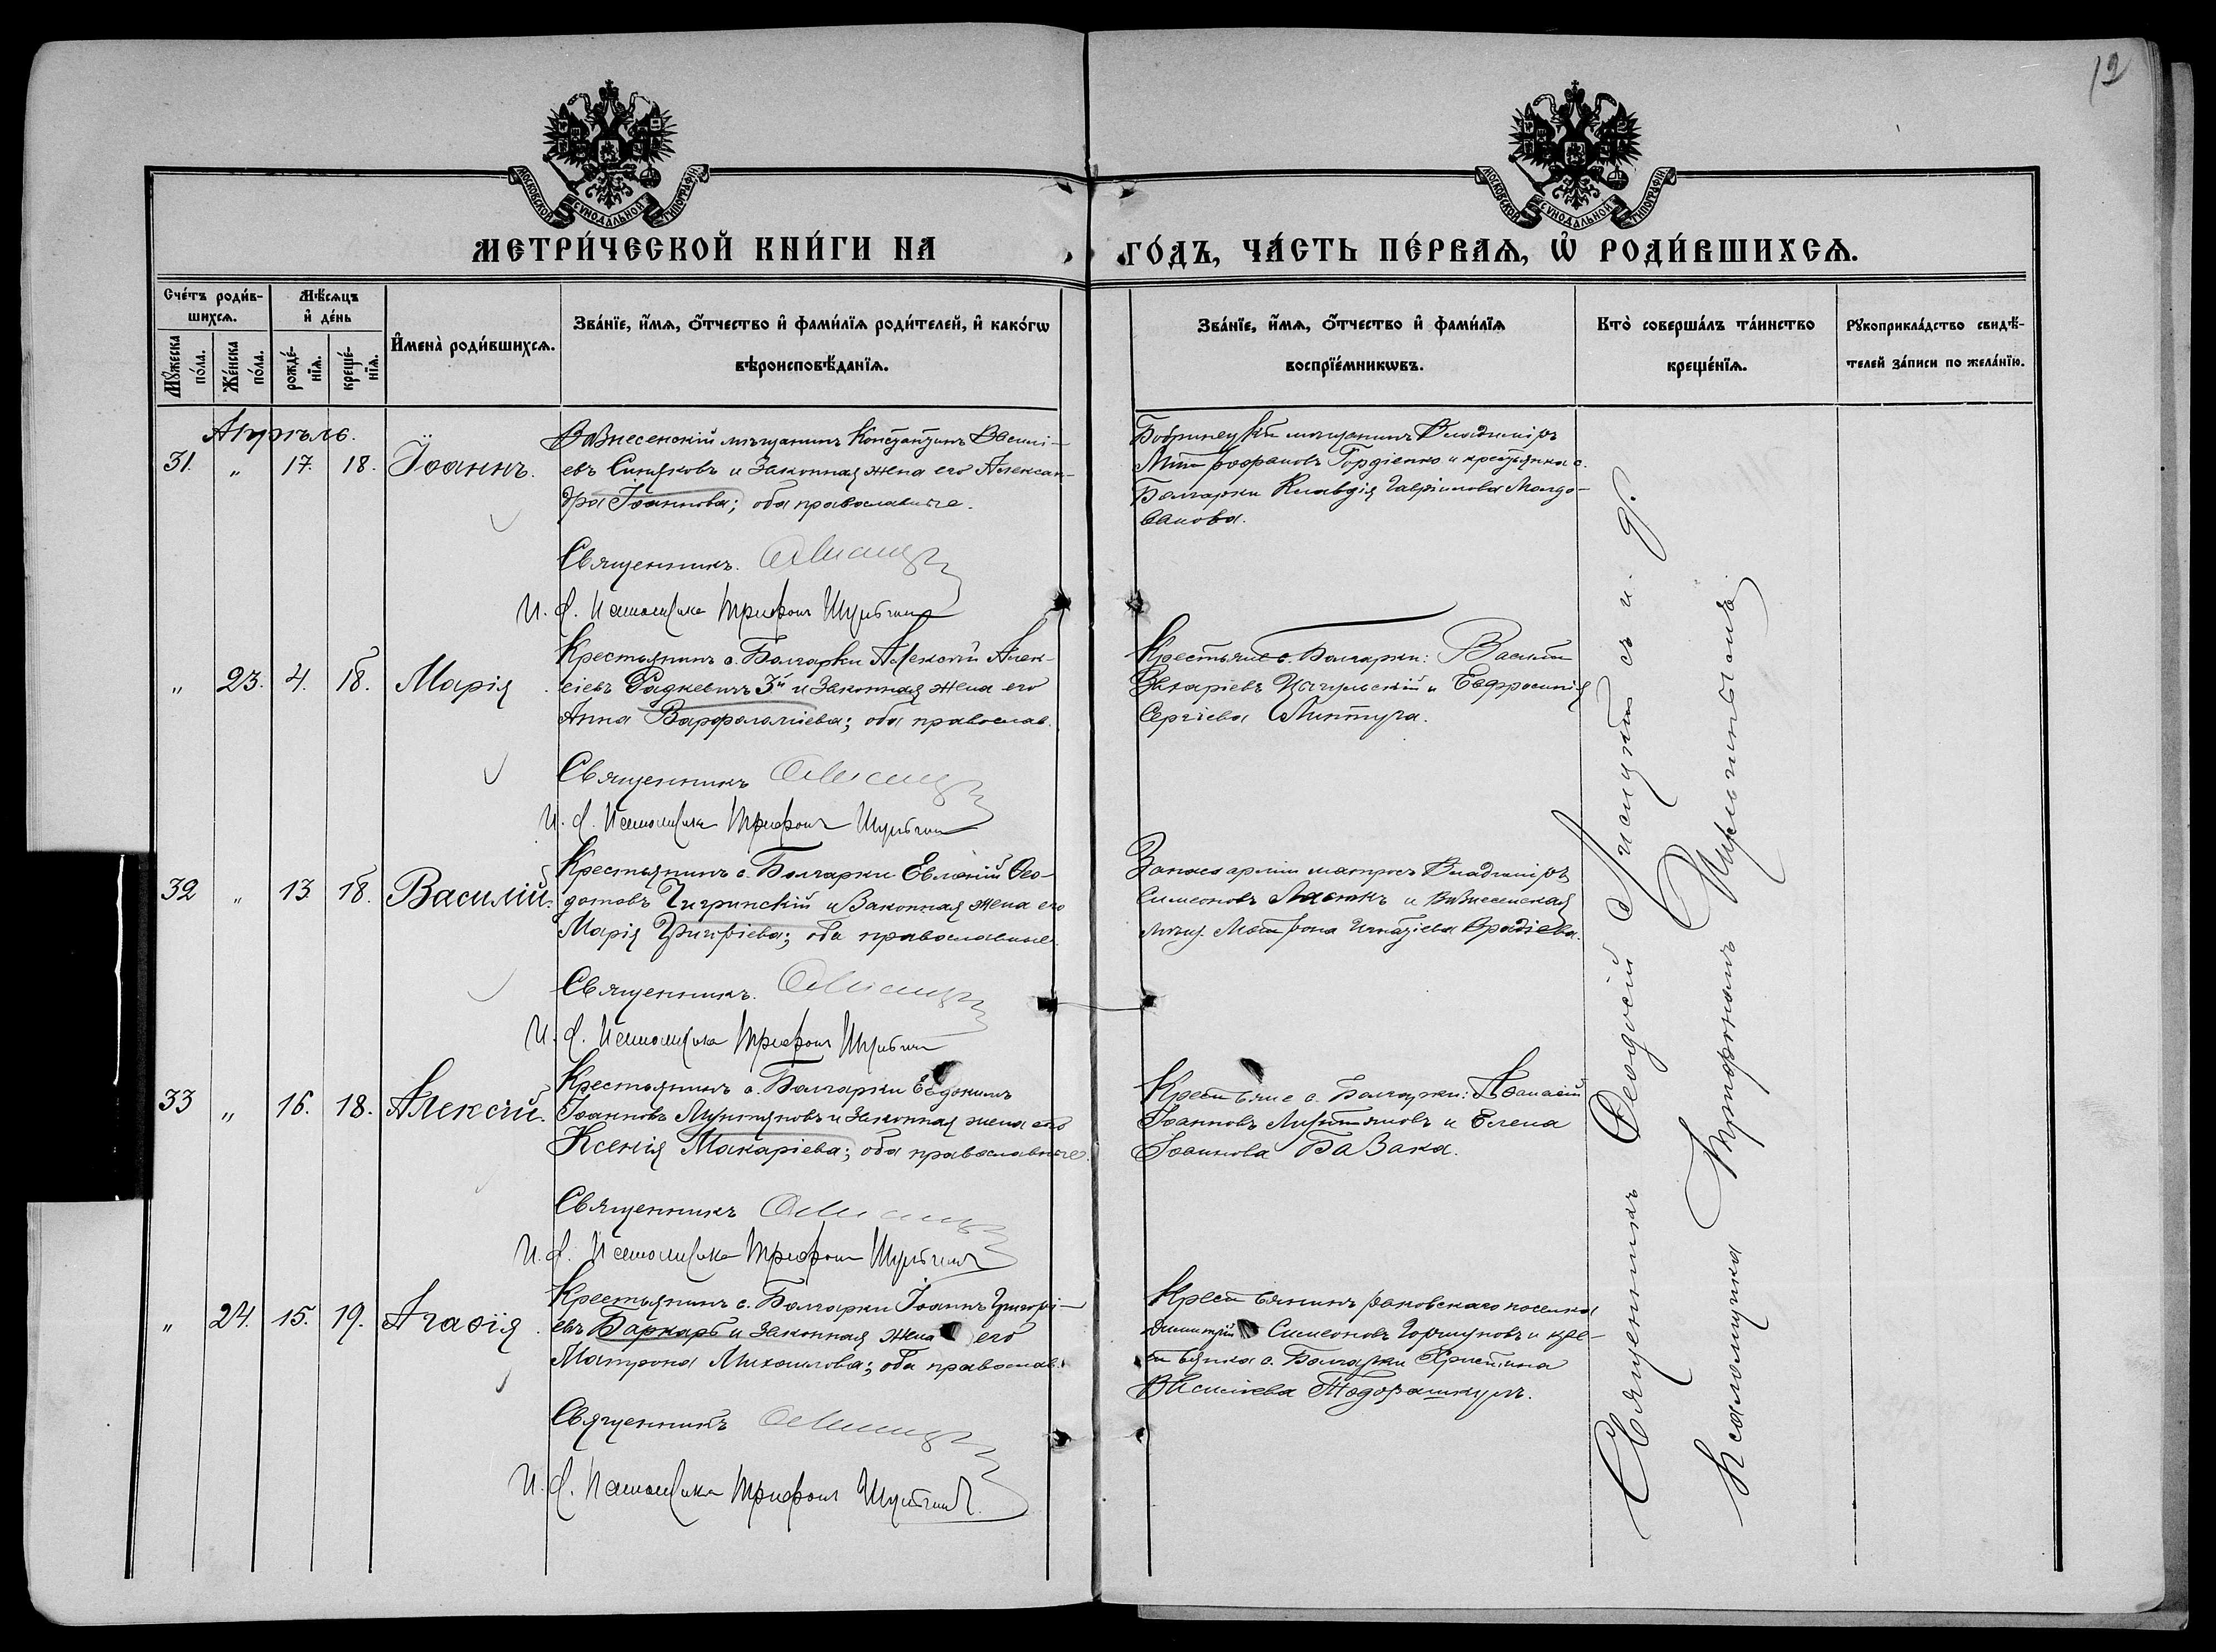 12
МОСКОВСКОЙ СѴНОДАЛЬНОЙ ТИПОГРАФІИ
МОСКОВСКОЙ СѴНОДАЛЬНОЙ ТИПОГРАФІИ
МЕТРИ́ЧЕСКОЙ КНИ́ГИ НА
ГО́ДЪ, ЧА́СТЬ ПЕ́РВАѦ, Ѡ҆ РОДИ́ВШИХСѦ.
Сче́тъ роди́в-
шихсѧ.
Мꙋ́жеска по́ла.
Же́нска по́ла.
Мѣ́сѧцъ
и҆ де́нь
рожде́-
нїѧ.
креще́-
нїѧ.
И҆мена̀ роди́вшихсѧ.
Зва́нїе, и҆́мѧ, ѻ҆́тчество и҆ фами́лїѧ роди́телей, и҆ како́гѡ
вѣроисповѣ́данїѧ.
Зва́нїе, и҆́мѧ, ѻ҆́тчество и҆ фами́лїѧ
воспрїе́мникѡвъ.
Кто̀ соверша́лъ та́инство
креще́нїѧ.
Рꙋкоприкла́дство свидѣ́-
телей за́писи по жела́нїю.
Апрѣль.
31. " 17. 18. Іоаннъ.
Вознесенскій мѣщанинъ Константинъ Васили-
евъ Синяковъ и законная жена его Алексан-
дра Іоаннова; оба православные.
Священникъ
И. д. Псаломщика Трифонъ Шульгинъ
Бобринецкій мѣщанинъ Владиміръ
Митрофановъ Гордіенко и крестьянка с.
Болгарки Клавдія Гавріилова Молдо-
ванова.
" 23. 4. 18. Марія
Крестьянинъ с. Болгарки Алексій Алек-
сіевъ Радкевичъ 3й и законная жена его
Анна Варфоломіева; оба православ.
Священникъ
И. д. Псаломщика Трифонъ Шульгинъ
Крестьяне с. Болгарки: Василій
Захаріевъ и Евфросинія
Сергіева Линтуга.
32 " 13 18. Василій.
Крестьянинъ с. Болгарки Евлогій Ѳео-
дотовъ Чигринскій и законная жена его
Марія Григоріева; оба православные.
Священникъ.
И. д. Псаломщика Трифонъ Шульгинъ
Запаса арміи матросъ Владиміръ
Симеоновъ и Вознесенская
мѣщ. Матрона Игнатіева Врадіева.
33 " 16. 18. Алексій.
Крестьянинъ с. Болгарки Евдокимъ
Іоанновъ Лунтяновъ и законная жена его
Ксенія Макаріева; оба православные.
Священникъ
И. д. Псаломщика Трифонъ Шульгинъ
Крестьяне с. Болгарки: Аѳанасій
Іоанновъ Лунтяновъ и Елена
Іоаннова Базака.
" 24. 15. 19. Агаѳія.
Крестьянинъ с. Болгарки Іоаннъ Григорі-
евъ Баркарь и законная жена его
Матрона Михаилова; оба православ.
Священникъ
И. д. Псаломщика Трифонъ Шульгинъ.
Крестьянинъ Раковскаго поселка
Димитрій Симеоновъ Горшуновъ и кре-
стьянка с. Болгарки Христина
Василіева Тодорашкулъ.
Священникъ Ѳеодосій Лисицкій съ и. д.
Псаломщика Трифономъ Шульгинымъ.